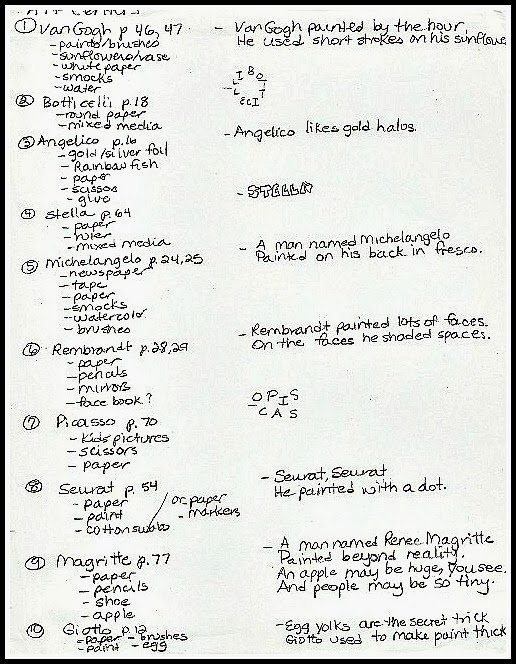 Art Centers
① Van Gogh p 46, 47
- paints/brushes
- sunflowers/vase
- white paper
- smocks
- water
- Van Gogh painted by the hour,
He used short strokes on his sunflowers
② Botticelli p.18
- round paper
- mixed media
I B O
L T
E C I T
③ Angelico p.16
- gold/silver foil
- Rainbow fish
- paper
- scissors
- glue
- Angelico likes gold halos.
④ Stella p. 64
- paper
- ruler
- mixed media
- STELLA
⑤ Michelangelo p. 24, 25
- newspaper
- tape
- paper
- smocks
- watercolor
- brushes
- A man named Michelangelo
Painted on his back in fresco.
⑥ Rembrandt p. 28, 29
- paper
- pencils
- mirrors
- face book?
- Rembrandt painted lots of faces.
On the faces he shaded spaces.
⑦ Picasso p. 70
- Kids pictures
- scissors
- paper
O P I S
- C A S
⑧ Seurat p. 54
- paper
- paint
- cotton swabs
/ or paper
- markers
- Seurat, Seurat
He painted with a dot.
⑨ Magritte p. 77
- paper
- pencils
- shoe
- apple
- A man named Renee Magritte
Painted beyond reality.
An apple may be huge, you see.
And people may be so tiny.
⑩ Giotto p. 12
- paper - brushes
- paint - egg
- Egg yolks are the secret trick
Giotto used to make paint thick